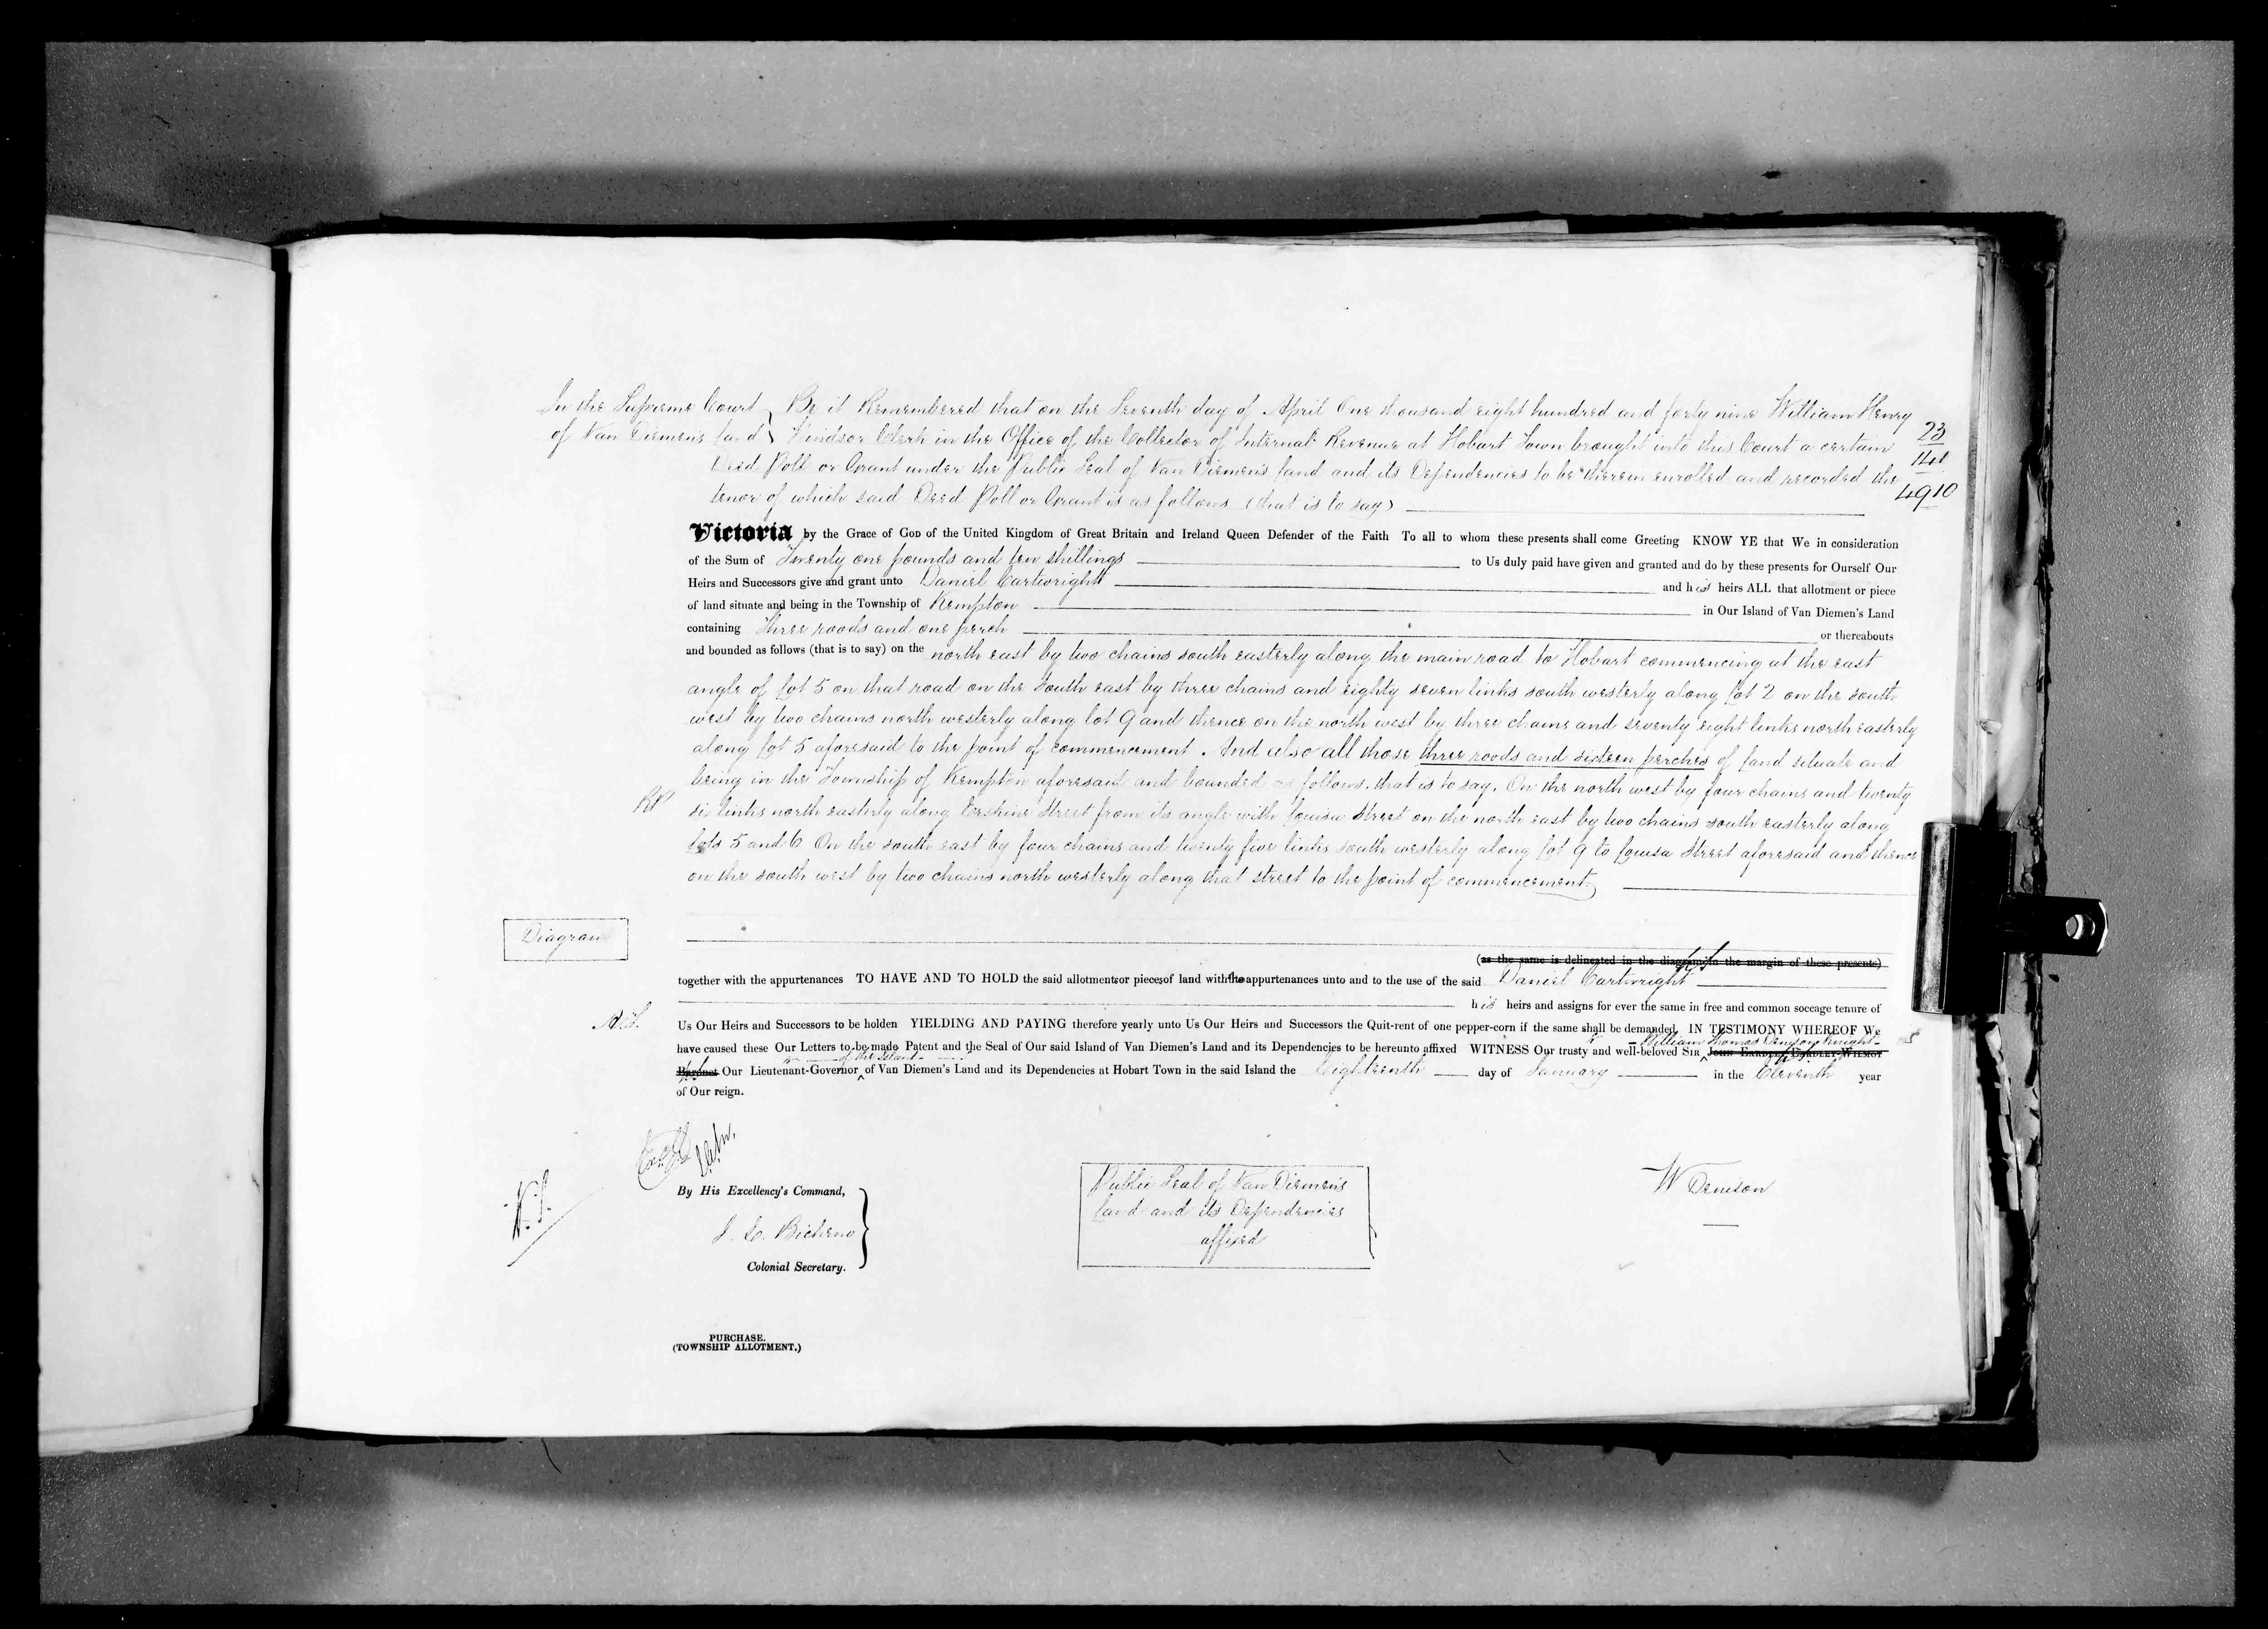 In the Supreme Court } Be it Remembered that on the Seventh day of April One thousand eight hundred and forty nine William Henry
of Van Diemens land } Windsor Clerk in the Office of the Collector of Internal Revenue at Hobart Town brought into this Court a certain
23
Deed Poll or Grant under the Public Seal of Van Diemens land and its Dependencies to be therein enrolled and recorded the
141
tenor of which said Deed Poll or Grant is as follows (that is to say)
4910
Victoria by the Grace of God of the United Kingdom of Great Britain and Ireland Queen Defender of the Faith To all to whom these presents shall come Greeting KNOW YE that We in consideration
of the Sum of Twenty one pounds and ten shillings to Us duly paid have given and granted and do by these presents for Ourself Our
Heirs and Successors give and grant unto Daniel Cartwright and his heirs ALL that allotment or piece
of land situate and being in the Township of Kempton in Our Island of Van Diemen's Land
containing Three roods and one perch or thereabouts
and bounded as follows (that is to say) on the north east by two chains south easterly along the main road to Hobart commencing at the east
angle of Lot 5 on that road on the South east by three chains and eighty seven links south westerly along Lot 2 on the south
west by two chains north westerly along lot 9 and thence on the north west by three chains and seventy eight links north easterly
along Lot 5 aforesaid to the point of commencement. And also all those three roods and sixteen perches of land situate and
being in the Township of Kempton aforesaid and bounded as follows. that is to say. On the north west by four chains and twenty
six links north easterly along Erskine Street from its angle with Louisa Street on the north east by two chains south easterly along
Lots 5 and 6 On the south east by four chains and twenty five links south westerly along Lot 9 to Louisa Street aforesaid and thence
on the south west by two chains north westerly along that street to the point of commencement.
Diagram
(as the same is delineated in the diagram in the margin of these presents)
together with the appurtenances TO HAVE AND TO HOLD the said allotments or pieces of land with the appurtenances unto and to the use of the said Daniel Cartwright
his heirs and assigns for ever the same in free and common soccage tenure of
Us Our Heirs and Successors to be holden YIELDING AND PAYING therefore yearly unto Us Our Heirs and Successors the Quit-rent of one pepper-corn if the same shall be demanded. IN TESTIMONY WHEREOF We
William Thomas Denison Knight
have caused these Our Letters to be made Patent and the Seal of Our said Island of Van Diemen's Land and its Dependencies to be hereunto affixed WITNESS Our trusty and well-beloved SIR JOHN EARDLEY EARDLEY-WILMOT
of the Island
Baronet Our Lieutenant-Governor of Van Diemen's Land and its Dependencies at Hobart Town in the said Island the Eighteenth day of January in the Eleventh year
of Our reign.
By His Excellency's Command,
J. E. Bicheno
Colonial Secretary.
Public Seal of Van Diemens
Land and its Dependencies
affixed
W Denison
PURCHASE.
(TOWNSHIP ALLOTMENT.)